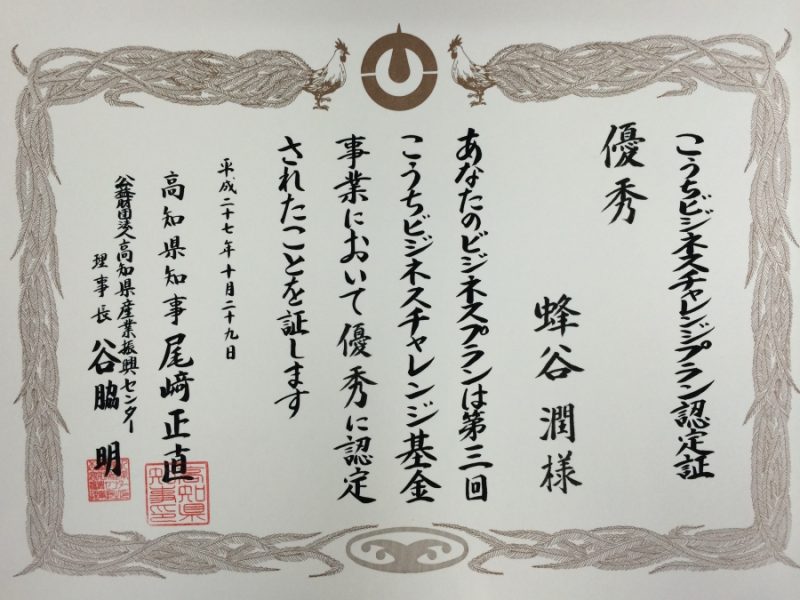 こうちビジネスチャレンジプラン認定証
優秀
蜂谷潤様
あなたのビジネスプランは第三回
こうちビジネスチャレンジ基金
事業において優秀に認定
されたことを証します
平成二十七年十月二十九日
高知県知事 尾﨑正直
公益財団法人高知県産業振興センター
理事長 谷脇 明
高知県知事之印